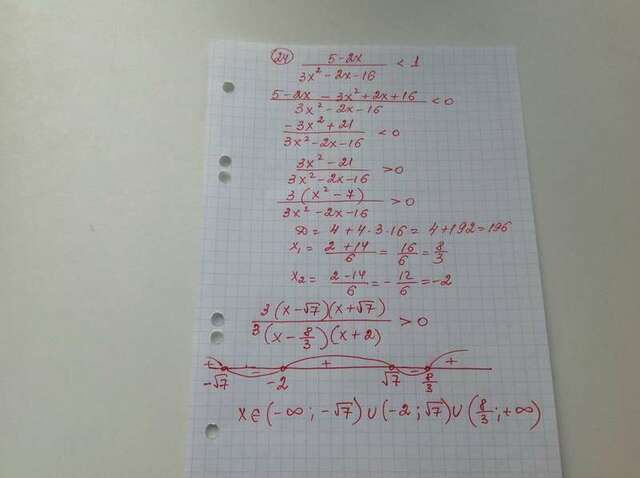 24 (5-2x)/(3x²-2x-16) < 1
(5-2x-3x²+2x+16)/(3x²-2x-16) < 0
(-3x²+21)/(3x²-2x-16) < 0
(3x²-21)/(3x²-2x-16) > 0
3(x²-7)/(3x²-2x-16) > 0
D = 4+4·3·16 = 4+192=196
x₁ = (2+14)/6 = 16/6 = 8/3
x₂ = (2-14)/6 = -12/6 = -2
3(x-√7)(x+√7)/3(x-8/3)(x+2) > 0
+ - + - +
-√7 -2 √7 8/3
x∈(-∞; -√7)∪(-2; √7)∪(8/3; +∞)